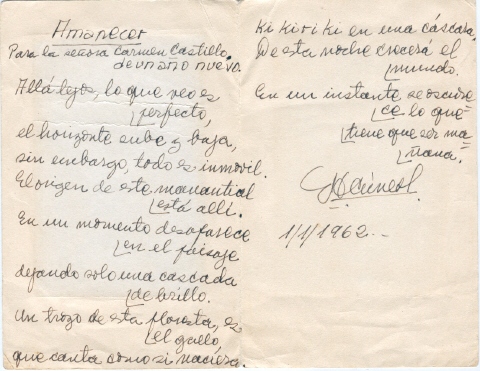 Amanecer
Para la señora Carmen Castillo,
de un año nuevo.
Allá lejos, lo que veo es
perfecto,
el horizonte sube y baja,
sin embargo, todo es inmóvil.
El origen de este manantial
está allí.
En un momento desaparece
en el paisaje
dejando solo una cascada
de brillo.
Un trozo de esta floresta, es
el gallo
que canta como si naciera.
Ki ki ri ki en una cáscara.
De esta noche crecerá el
mundo.
En un instante se oscure
ce lo que
tiene que ser ma
ñana.
1/1/1962--